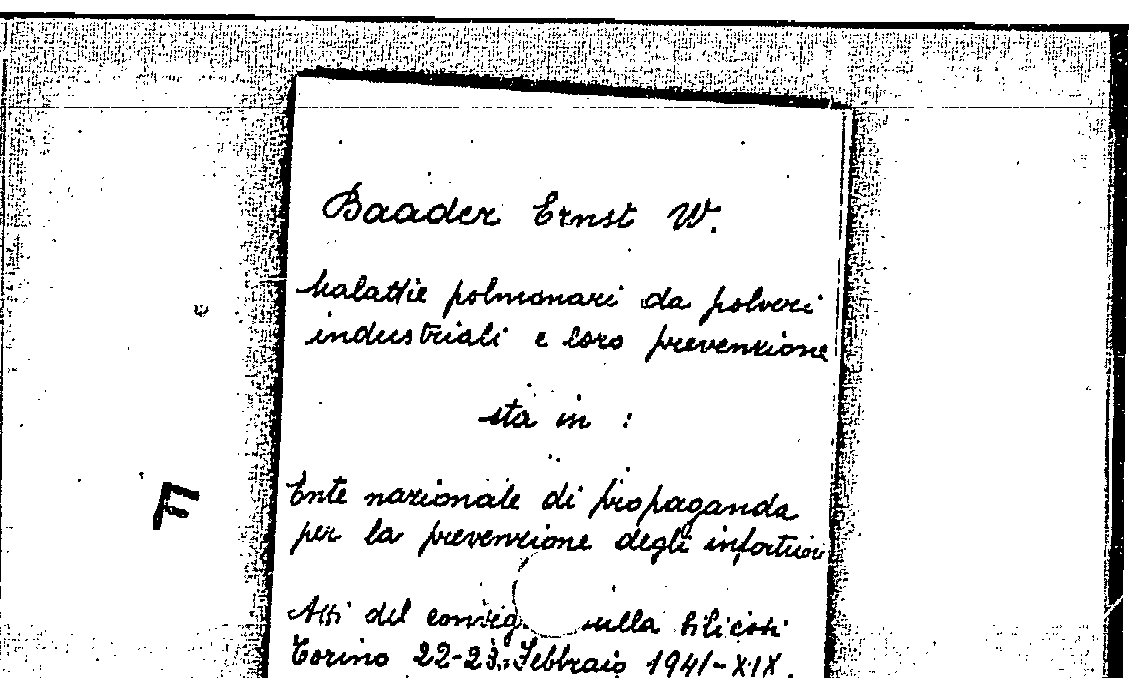 Baader Ernst W.
Malattie polmonari da polveri
industriali e loro prevenzione
sta in :
Ente nazionale di propaganda
F
per la prevenzione degli infortuni
Atti del sulla Silicosi
Torino 22-23 Febbraio 1941-XIX.